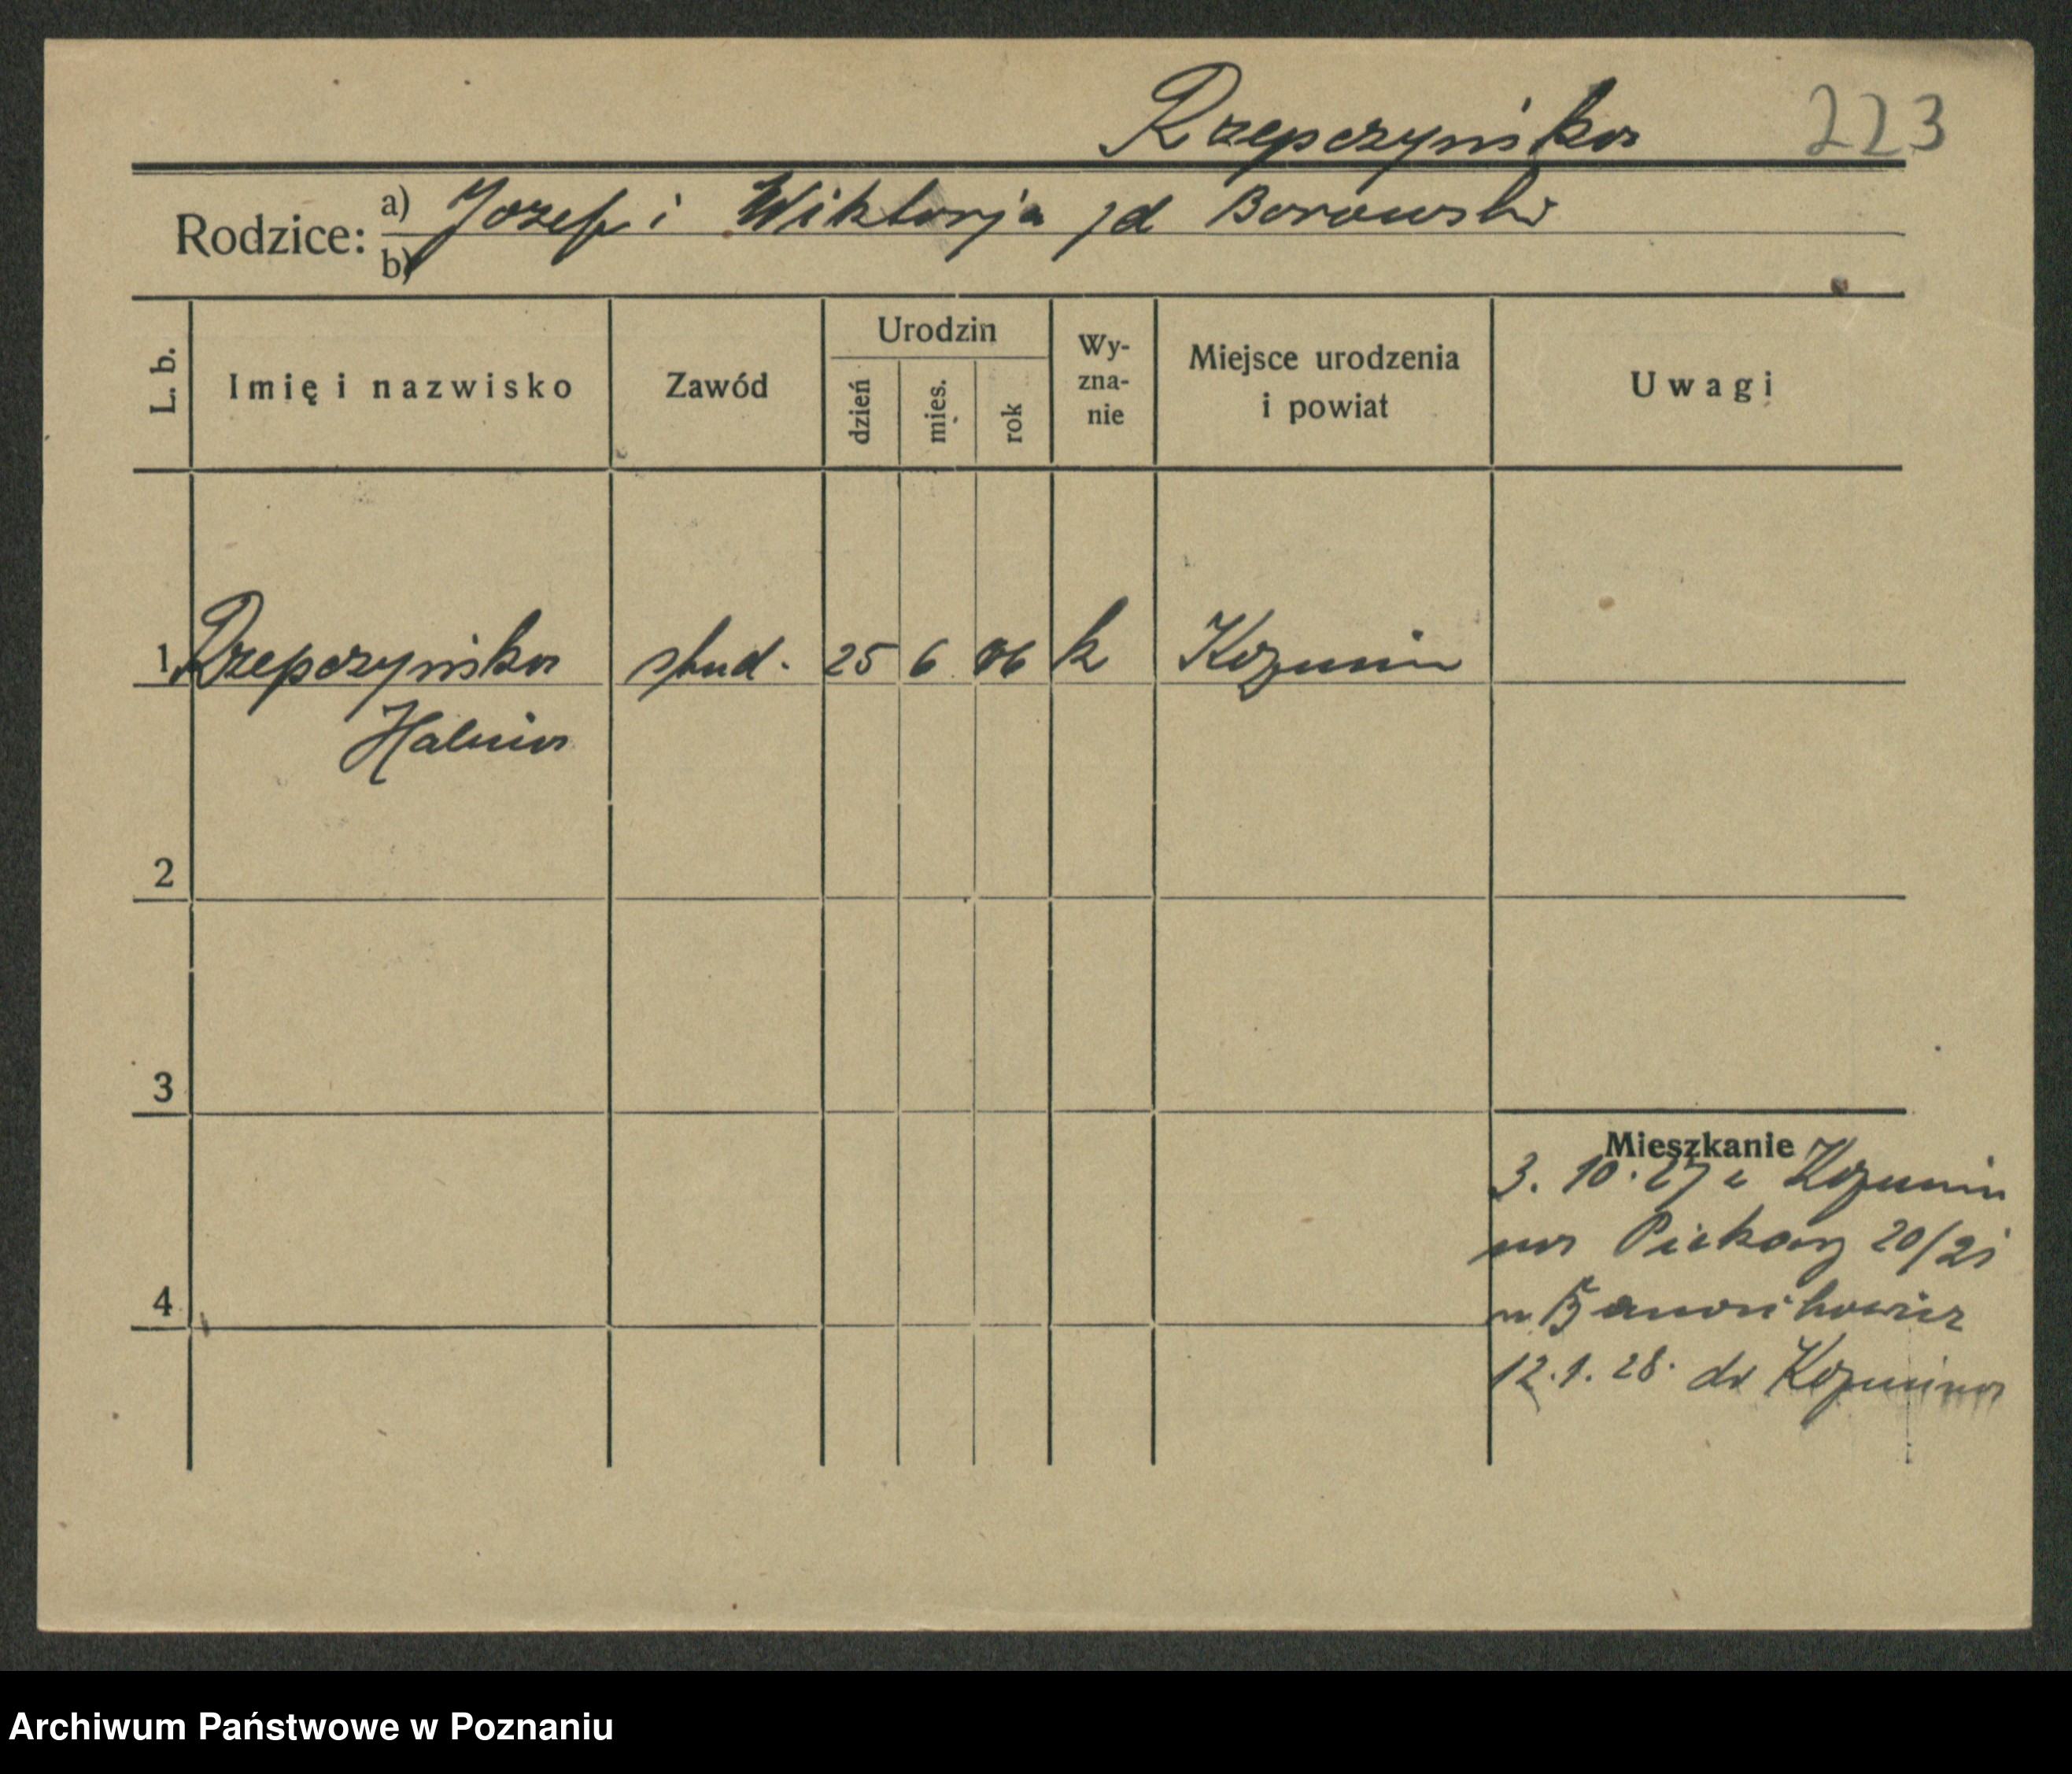 Rzepczyńska 223
Rodzice: a) Józef i Wiktorja jd Borowski
b)
L. b. Imię i nazwisko Zawód Urodzin dzień mies. rok Wy-zna-nie Miejsce urodzenia i powiat Uwagi
1 Rzepczyńska stud. 25 6 06 k Kozmin
Halina
2
3
Mieszkanie
3. 10. 27 z Kozmin
na Piekary 20/21
4
12. 1. 28. do Kozmina
Archiwum Państwowe w Poznaniu